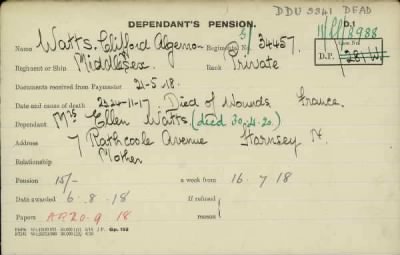 DDU 2341 DEAD
DEPENDANT'S PENSION.
D.1
11/M/8988
Name Watts. Clifford Algernon Regimental No. G/ 34457. Case No.
Regiment or Ship Middlesex Rank Private D.P. 281 W
Documents received from Paymaster 21-5-18.
Date and cause of death 24-11-17 Died of Wounds France.
Dependant Mrs Ellen Watts. (died 30.4.20.)
Address 7 Rathcoole Avenue Hornsey N.
Relationship Mother
Pension 15/- a week from 16.7.18
Date awarded 6.8.18 If refused
reason
Papers AR20.9 18
Gp. 152